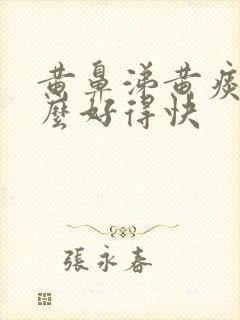 黄鼻涕黄痰
麼好得快
張永春